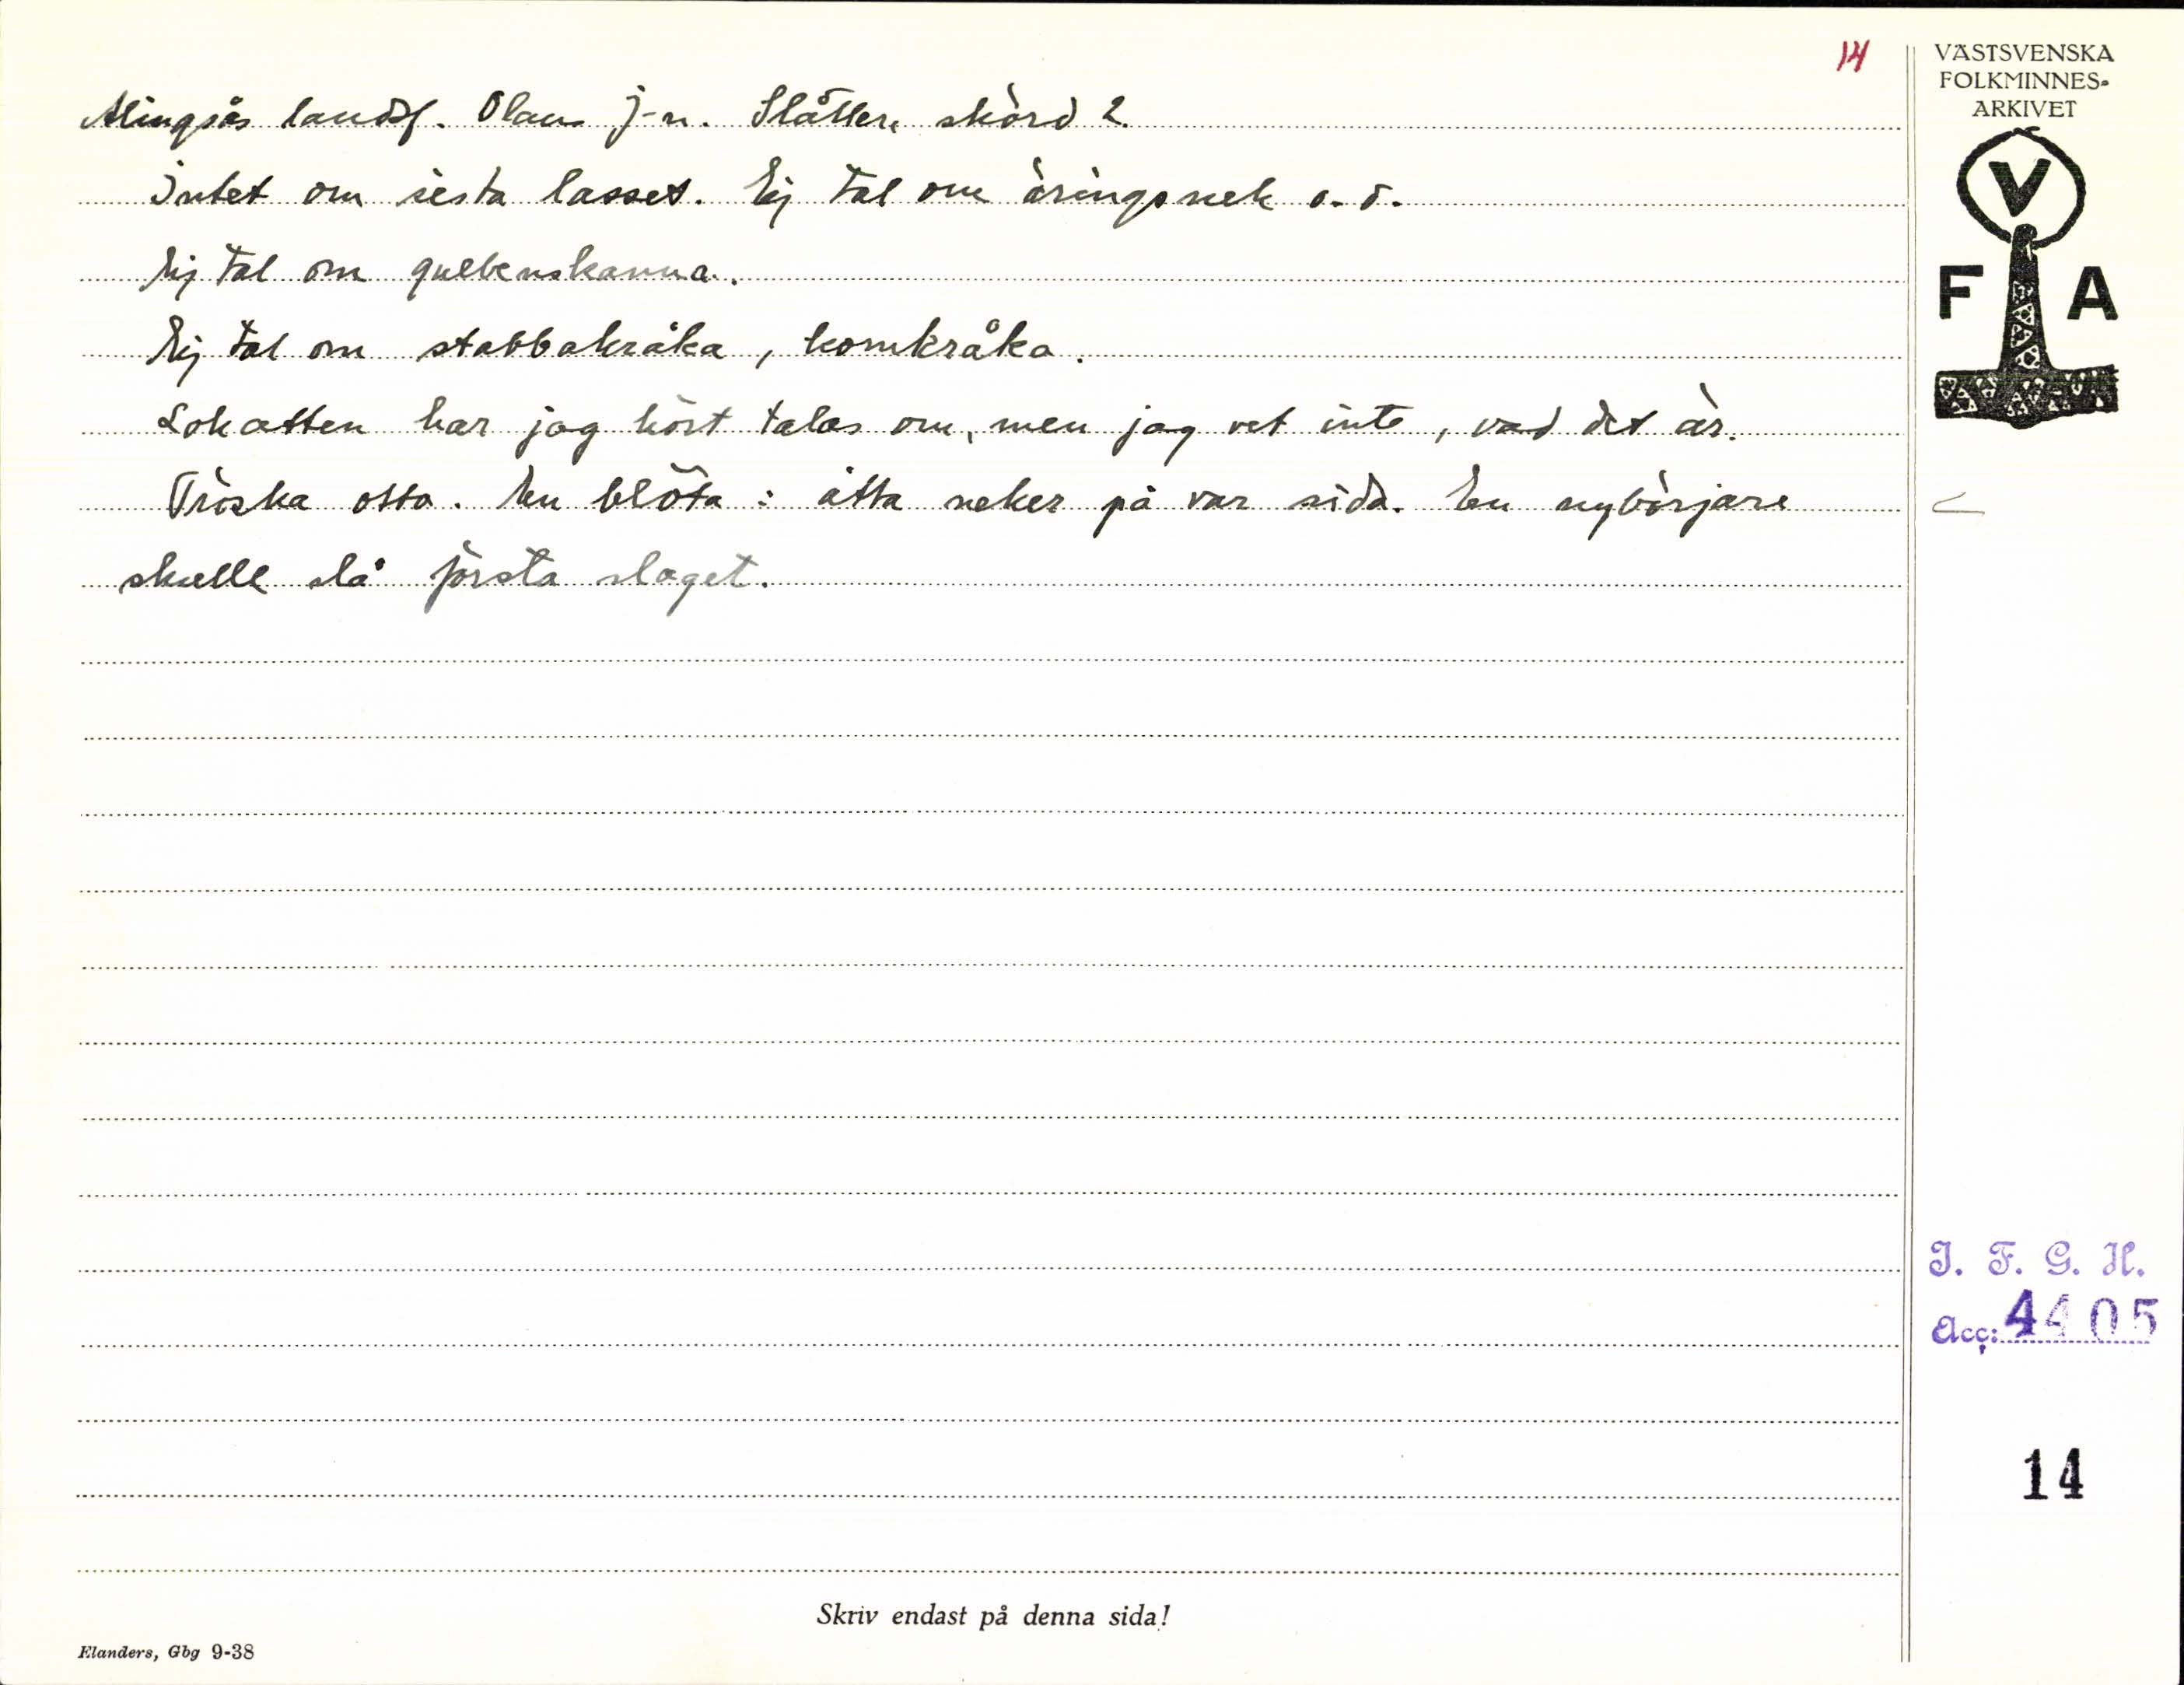 14
Alingsås landsf. Olaus J-n. Slåtter, skörd 2.
Intet om sista lasset. Ej tal om åringsnek o. d.
Ej tal om gullenskanna.
Ej tal om stabbakråka, kornkråka.
Lokatten har jag hört talas om, men jag vet inte, vad det är.
Tröska otta. En blöta: åtta neker på var sida. En nybörjare
skulle slå första slaget.
VÄSTSVENSKA
FOLKMINNES-
ARKIVET
V
F A
I. F. G. H.
Acc: 4405
14
Skriv endast på denna sida!
Elanders, Gbg 9-38